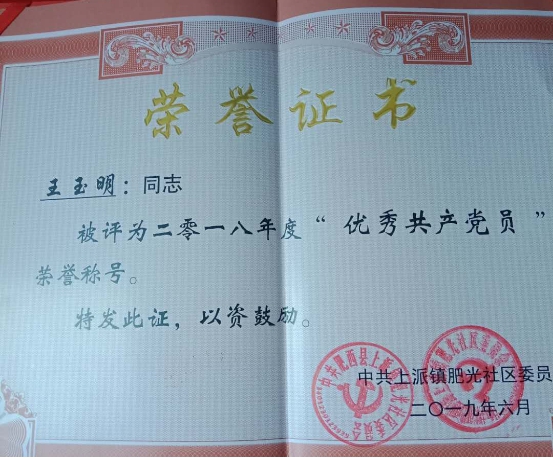 荣誉证书
王玉明：同志
被评为二零一八年度“优秀共产党员”
荣誉称号。
特发此证，以资鼓励。
中共上派镇肥光社区委员
二〇一九年六月